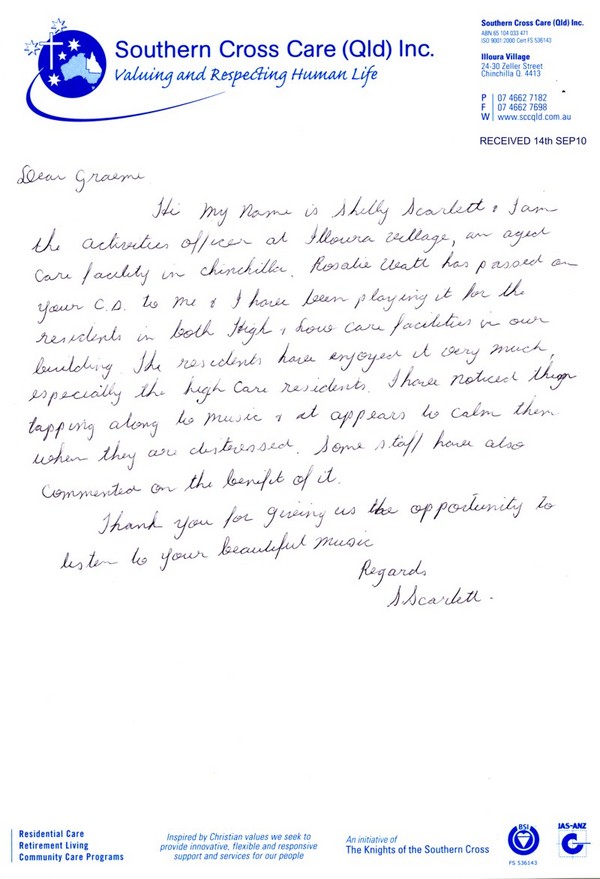 Southern Cross Care (Qld) Inc.
Valuing and Respecting Human Life
Southern Cross Care (Qld) Inc.
ABN 65 104 033 471
ISO 9001:2000 Cert FS 536143
Illoura Village
24-30 Zeller Street
Chinchilla Q. 4413
P 07 4662 7182
F 07 4662 7698
W www.sccqld.com.au
RECEIVED 14th SEP10
Dear Graeme
Hi My Name is Shelly Scarlett & I am
the activities officer at Illoura Village, an aged
Care facility in chinchilla. Rosalie Watt has passed on
your C.D. to me & I have been playing it for the
residents in both High & Low care facilities in our
building. The residents have enjoyed it very much,
especially the high Care residents. I have noticed them
tapping along to music & it appears to calm them
when they are distressed. Some staff have also
Commented on the benefit of it.
Thank you for giving us the opportunity to
listen to your beautiful music
Regards
S Scarlett.
Residential Care
Retirement Living
Community Care Programs
Inspired by Christian values we seek to
provide innovative, flexible and responsive
support and services for our people
An initiative of
The Knights of the Southern Cross
BSI
FS 536143
JAS-ANZ